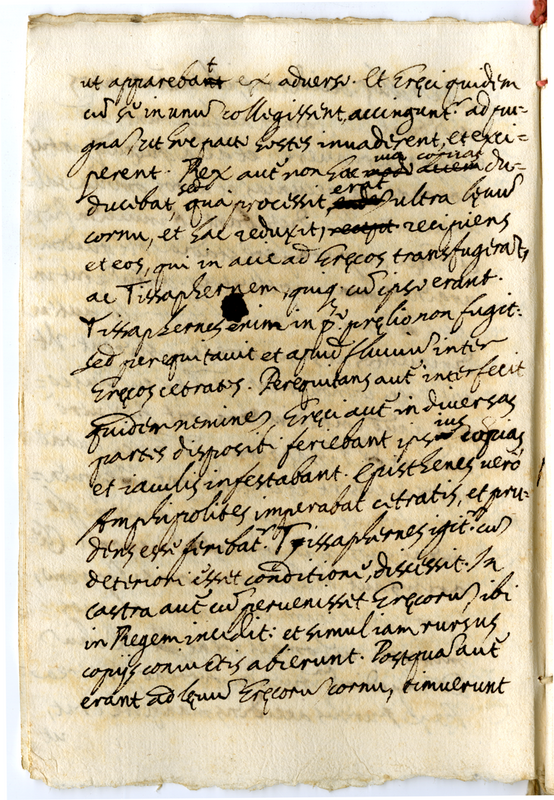 ut apparebat ex adverso. Et Gręci quidem
cū se in unū collegissent, accingunt.r ad pu-
gnā, ut hoc pacto hostes invaderent, et exci-
perent. Rex aut̃ non hac via copias du-
ducibat, sed qua processit erat ultra lęvū
cornu, et hac reduxit, recipiens
et eos, qui in acie ad Gręcos transfugerāt,
ac Tissaphernem, quiq. cū ipso erant.
Tissaphernes enim in p.º pręlio non fugit:
sed perequitavit et apud fluviū inter
Gręcos cetratos. Perequitans aut̃ interfecit
quidem neminē, Gręci aut̃ in diversas
partes dispositi feriebant ipsius copias
et iaculis infestabant. Episthenes verò
Amphipolites imperabat cetratis, et pru-
dens esse ferebat.r Tissaphernes igit.r cū
deteriori esset conditione, discessit. In
castra aut̃ cū pervenisset Gręcorū, ibi
in Regem incidit: et simul iam rursus
copijs coniunctis abierunt. Postquā aut̃
erant ad lęvū Gręcorū cornu, timuerunt